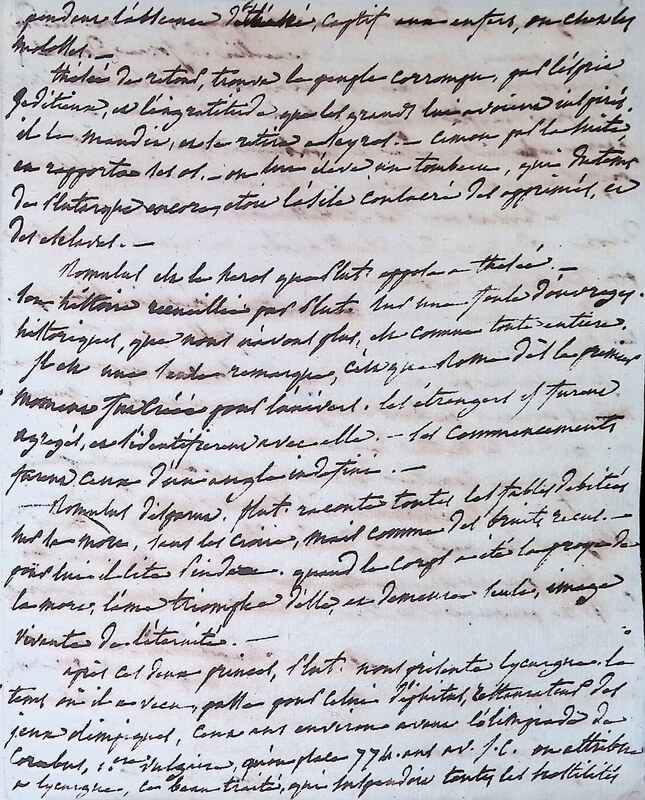 pendant l'absence de thésée, captif aux enfers, ou chez les
molosses. —
thésée de retour, trouva le peuple corrompu, par l'esprit
séditieux, et l'ingratitude que les grands lui avoient inspirés.
il le maudit, et se retire a scyros. — cimon par la suite
en rapporta ses os. — on lui élève un tombeau, qui du tems
de plutarque encore, etoit l'asile consacré des opprimés, et
des esclaves. —
Romulus est le heros que plut. oppose a thésée. —
son histoire recueillie par plut. sur une foule d'ouvrages
historiques, que nous n'avons plus, est connue toute entiere.
il est une seule remarque, c'est que Rome dès le premier
moment fut créée pour l'univers. les étrangers y furent
agregés, et s'identifierent avec elle. — ses commencements
furent ceux d'un angle indefini. —
Romulus disparut. plut. raconte toutes les fables debitées
sur sa mort, sans les croire, mais comme des bruits recus. —
pour lui il cite pindare. quand le corps a été la proye de
la mort, l'ame triomphe d'elle, et demeure seule, image
vivante de l'éternité. —
après ces deux princes, plut. nous présente lycurgue. le
tems où il a vecu, passe pour celui d'iphitus, restaurateur des
jeux olimpiques, cent ans environ avant l'olimpiade de
Corebus, 1.ere vulgaire, qu'on place 774 ans av. J.C. on attribue
a lycurgue, ce beau traité, qui suspendoit toutes les hostilités